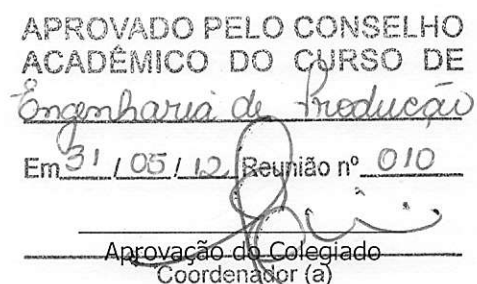 APROVADO PELO CONSELHO
ACADÊMICO DO CURSO DE
Engenharia de Produção
Em 31 / 05 / 12 Reunião nº 010
Aprovação do Colegiado
Coordenador (a)